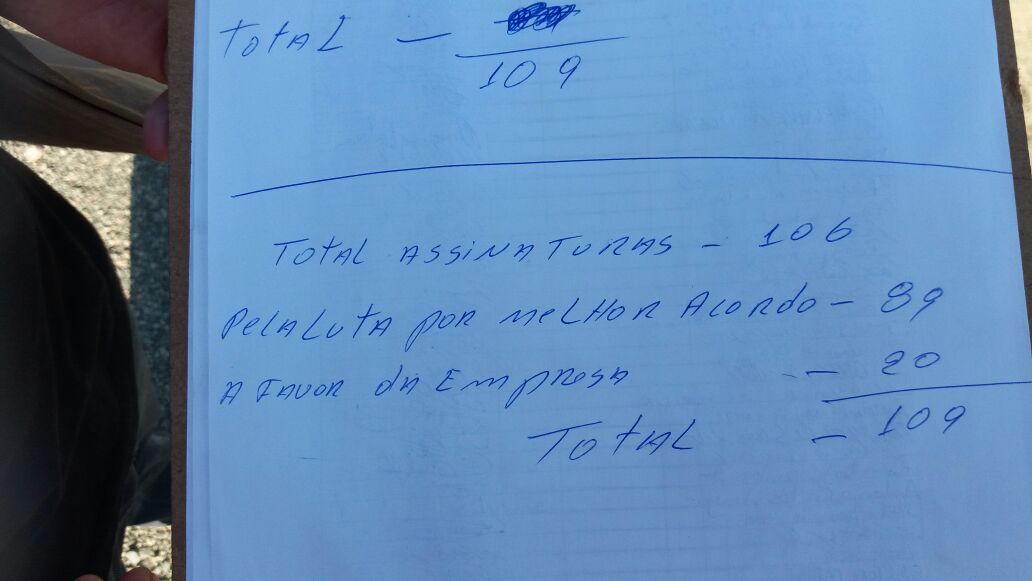 Total —
109
Total assinaturas - 106
Pela Luta por melhor Acordo - 89
A favor da Empresa - 20
Total - 109